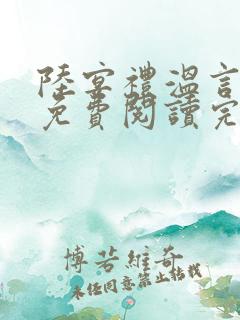 陸宴禮溫言
免費閱讀完
博若維奇
未經同意禁止轉載